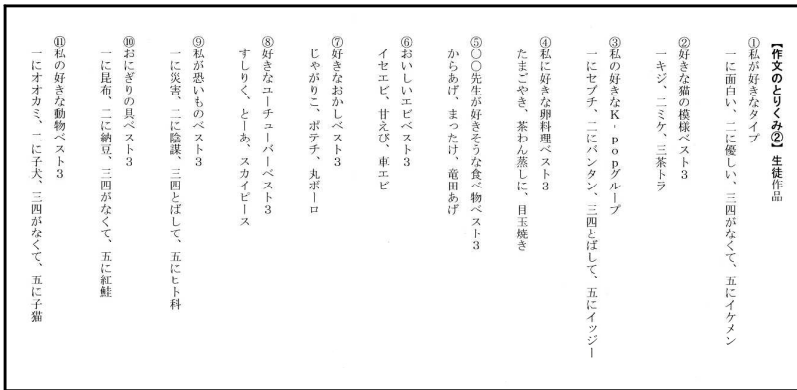 【作文のとりくみ②】生徒作品
①私が好きなタイプ
一に面白い、二に優しい、三四がなくて、五にイケメン
②好きな猫の模様ベスト３
一キジ、二ミケ、三茶トラ
③私の好きなK‐popグループ
一にセブチ、二にバンタン、三四とばして、五にイッジー
④私に好きな卵料理ベスト３
たまごやき、茶わん蒸しに、目玉焼き
⑤○○先生が好きそうな食べ物ベスト３
からあげ、まったけ、竜田あげ
⑥おいしいエビベスト３
イセエビ、甘えび、車エビ
⑦好きなおかしベスト３
じゃがりこ、ポテチ、丸ボーロ
⑧好きなユーチューバーベスト３
すしりく、とーあ、スカイピース
⑨私が恐いものベスト３
一に災害、二に陰謀、三四とばして、五にヒト科
⑩おにぎりの具ベスト３
一に昆布、二に納豆、三四がなくて、五に紅鮭
⑪私の好きな動物ベスト３
一にオオカミ、一に子犬、三四がなくて、五に子猫